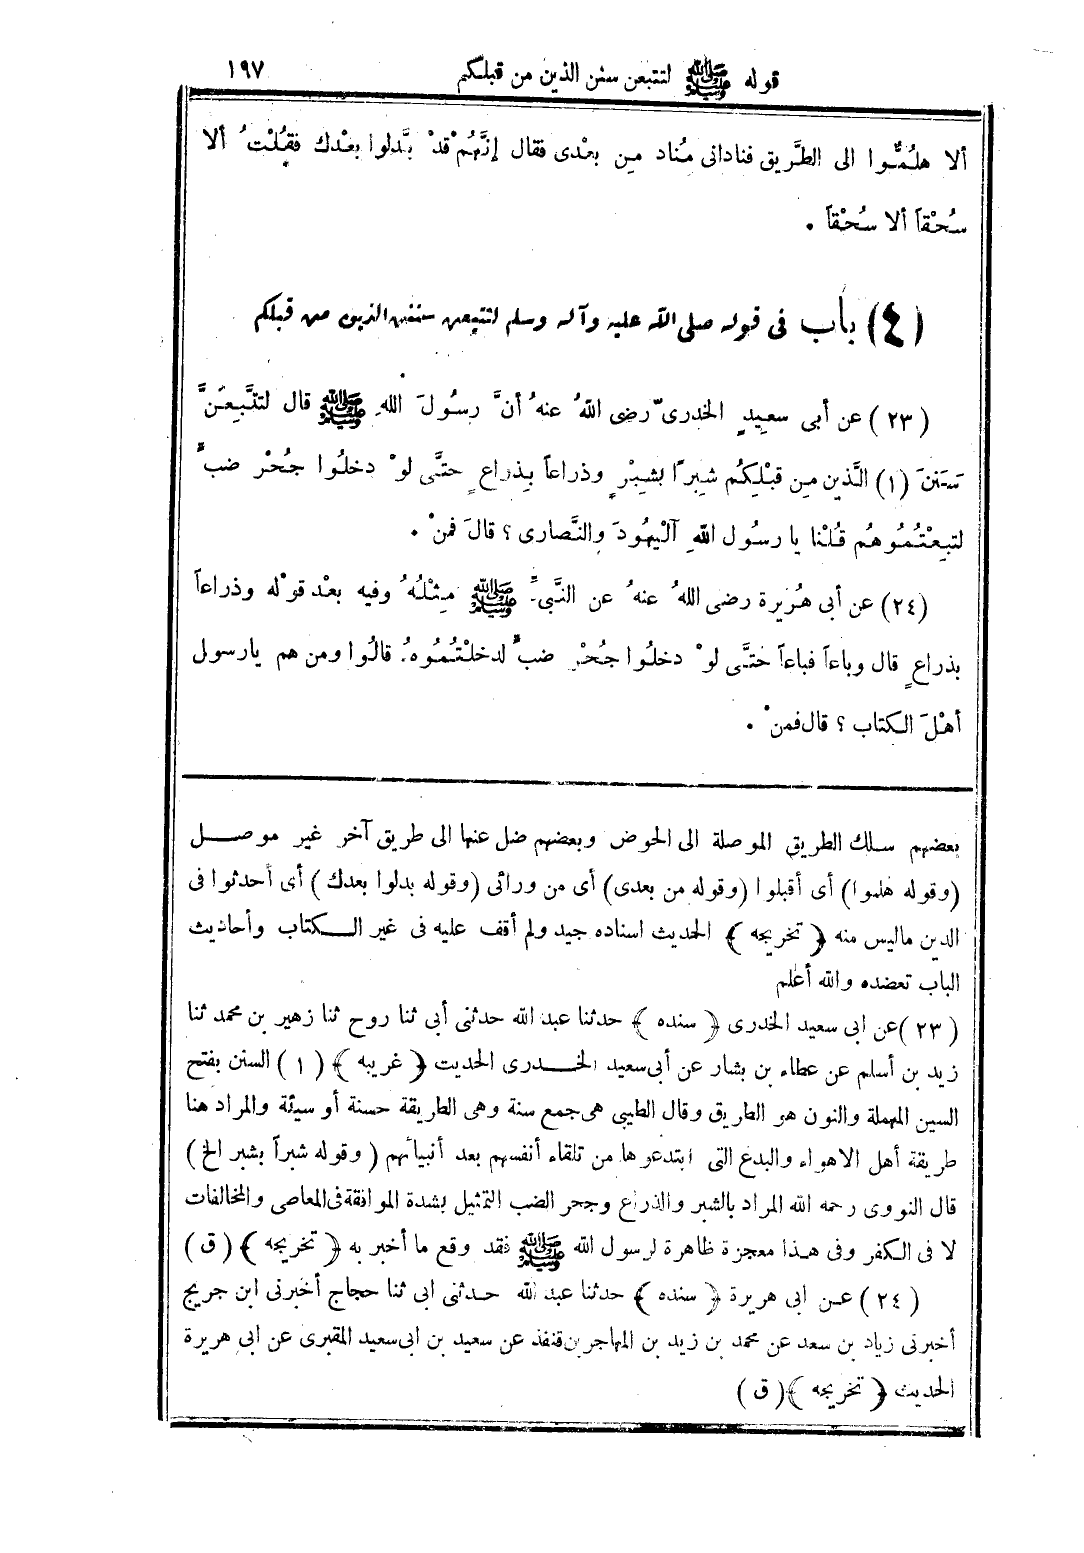 قوله ﷺ لتتبعن سنن الذين من قبلكم ١٩٧
ألا هلُمُّوا الى الطَّريق فنادانى مُناد مِن بعْدى فقال إنَّهُمْ قدْ بَدَّلوا بعْدك فقُلْتُ ألا
سُحْقاً ألا سُحْقاً .
(٤) باب فى قوله صلى الله عليه وآله وسلم لتتبعن سنن الذين من قبلكم
(٢٣) عن أبى سعيدٍ الخدرىّ رضى اللهُ عنهُ أنَّ رسُولَ اللهِ ﷺ قال لتتَّبِعُنَّ
سَنَنَ (١) الَّذين مِن قبْلِكُم شِبرًا بشِبْرٍ وذراعاً بِذراعٍ حتَّى لوْ دخلُوا جُحْرَ ضبٍّ
لتبِعْتُمُوهُم قُلْنا يا رسُول اللهِ آلْيهُودَ والنَّصارى ؟ قالَ فمنْ .
(٢٤) عن أبى هُريرة رضى اللهُ عنهُ عن النَّبىِّ ﷺ مِثْلُهُ وفيه بعْد قوْله وذراعاً
بذراعٍ قال وباعاً فباعاً حتَّى لوْ دخلُوا جُحْرَ ضبٍّ لدخلْتُمُوهُ قالُوا ومن هم يارسول
أهْلَ الكتاب ؟ قال فمنْ .
بعضهم سلك الطريق الموصلة الى الحوض وبعضهم ضل عنها الى طريق آخر غير موصل
(وقوله هلموا) أى أقبلوا (وقوله من بعدى) أى من ورائى (وقوله بدلوا بعدك) أى أحدثوا فى
الدين ماليس منه ﴿ تخريجه ﴾ الحديث اسناده جيد ولم أقف عليه فى غير الكتاب وأحاديث
الباب تعضده والله أعلم
(٢٣) عن ابى سعيد الخدرى ﴿ سنده ﴾ حدثنا عبد الله حدثنى أبى ثنا روح ثنا زهير بن محمد ثنا
زيد بن أسلم عن عطاء بن بشار عن أبى سعيد الخدرى الحديث ﴿ غريبه ﴾ (١) السنن بفتح
السين المهملة والنون هو الطريق وقال الطيبى هى جمع سنة وهى الطريقة حسنة أو سيئة والمراد هنا
طريقة أهل الاهواء والبدع التى ابتدعوها من تلقاء أنفسهم بعد أنبيائهم (وقوله شبراً بشبر الخ)
قال النووى رحمه الله المراد بالشبر والذراع وجحر الضب التمثيل بشدة الموافقة فى المعاصى والمخالفات
لا فى الكفر وفى هذا معجزة ظاهرة لرسول الله ﷺ فقد وقع ما أخبر به ﴿ تخريجه ﴾ (ق)
(٢٤) عن ابى هريرة ﴿ سنده ﴾ حدثنا عبد الله حدثنى ابى ثنا حجاج أخبرنى ابن جريج
أخبرنى زياد بن سعد عن محمد بن زيد بن المهاجر بن قنفذ عن سعيد بن ابى سعيد المقبرى عن ابى هريرة
الحديث ﴿ تخريجه ﴾ (ق)